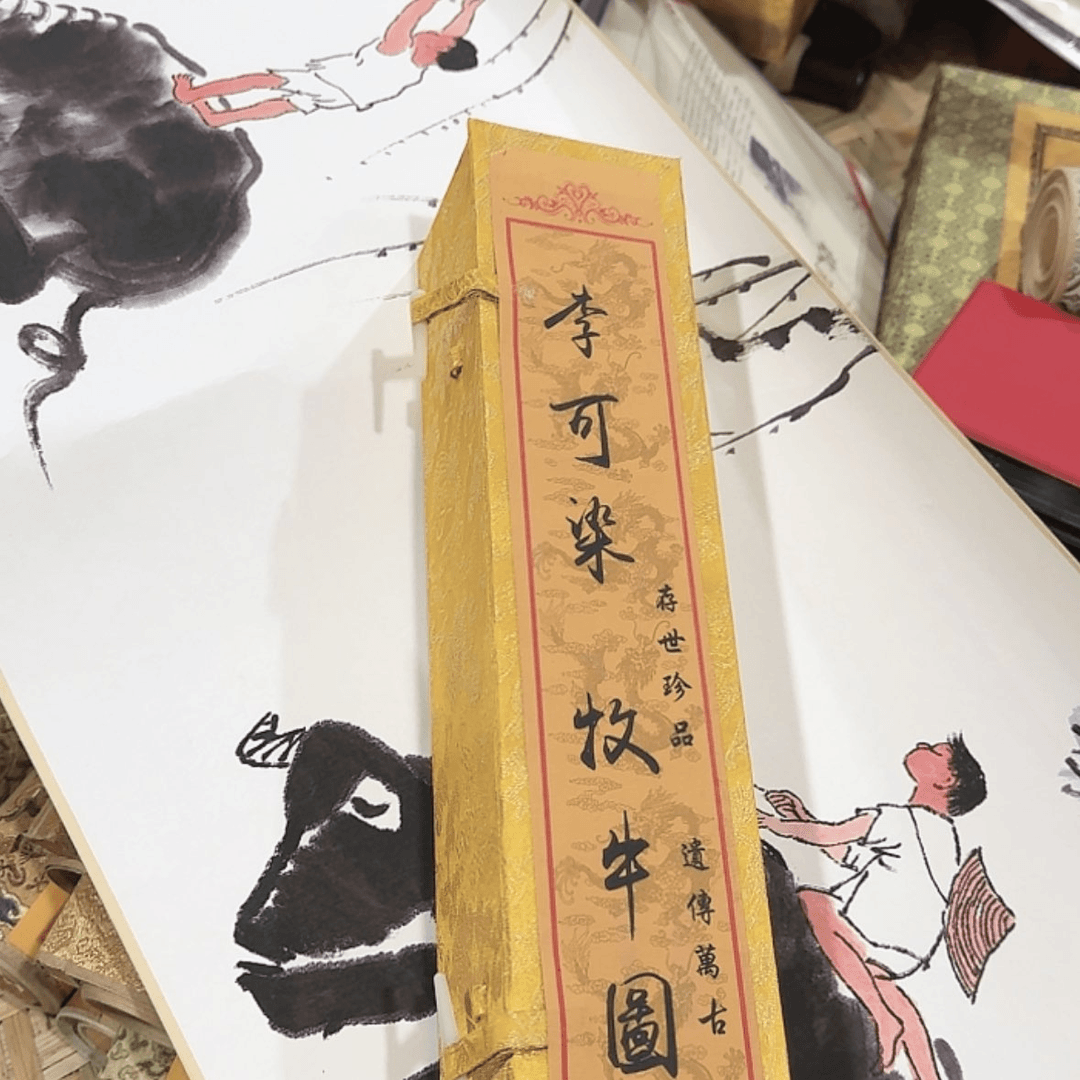 李可染牧牛圖
存世珍品
遺傳萬古